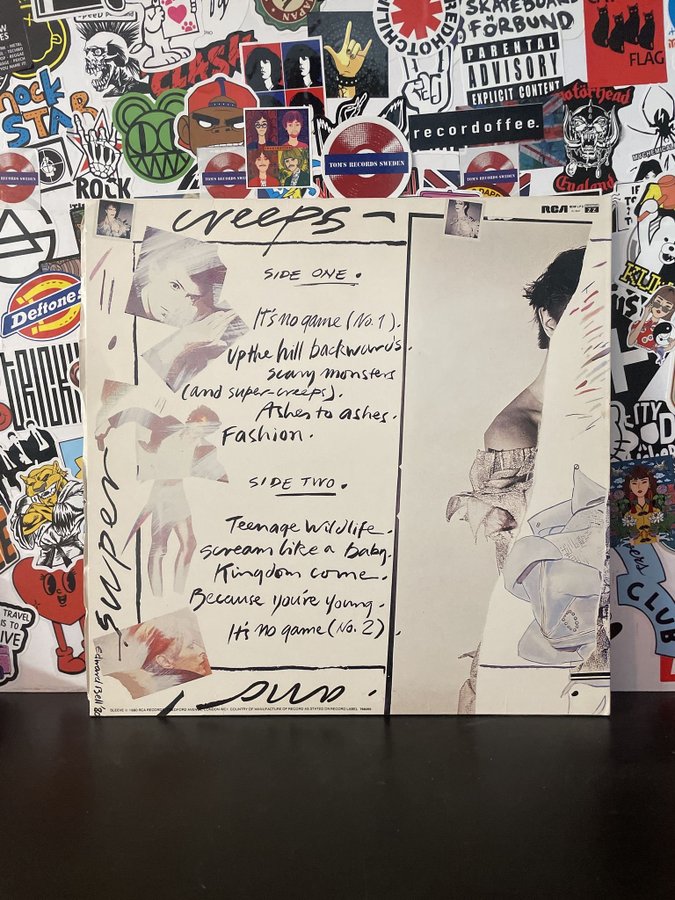 SKATEBOARD
FÖRBUND
RED HOT CHILI
PARENTAL
ADVISORY
EXPLICIT CONTENT
FLAG
CLASH
ROCK
STAR
recordoffee.
Motörhead
England
TOM'S RECORDS SWEDEN
TOM'S RECORDS SWEDEN
TOM'S RECORDS SWEDEN
TOM'S RECORDS SWEDEN
ROCK
Deftones
TRAVEL
IS TO
LIVE
CLUB
creeps -
RCA
SIDE ONE.
It's no game (No. 1).
Up the hill backwards.
Scary monsters
(and super-creeps).
Ashes to ashes.
Fashion.
SIDE TWO.
Teenage Wildlife.
Scream like a baby.
Kingdom come.
Because you're young.
It's no game (No. 2).
super
and
Edward Bell '80